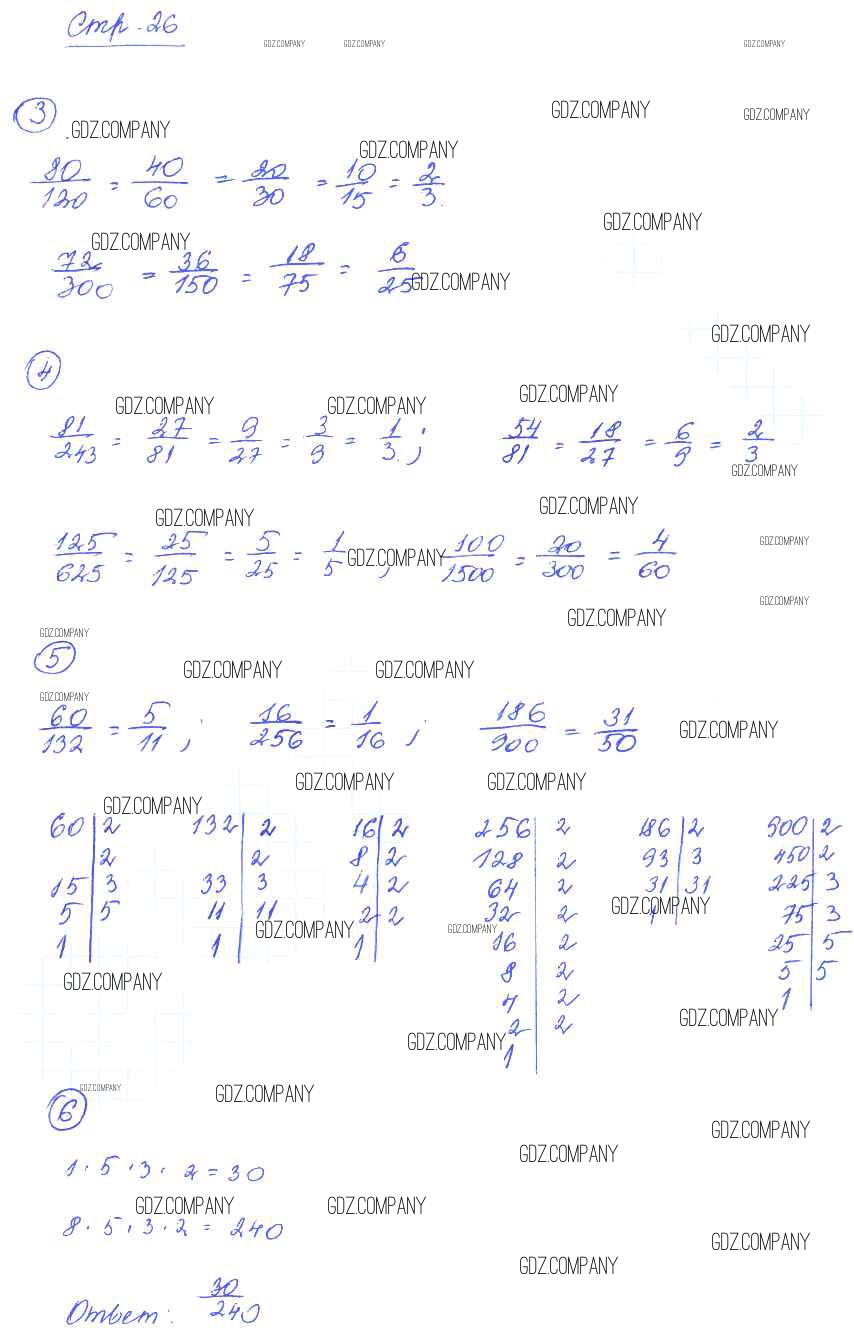 Стр. 26
GDZ.COMPANY GDZ.COMPANY GDZ.COMPANY
3
GDZ.COMPANY GDZ.COMPANY
.GDZ.COMPANY
GDZ.COMPANY
80/120 = 40/60 = 20/30 = 10/15 = 2/3.
GDZ.COMPANY
GDZ.COMPANY
72/300 = 36/150 = 18/75 = 6/25
GDZ.COMPANY
GDZ.COMPANY
4
GDZ.COMPANY GDZ.COMPANY GDZ.COMPANY
81/243 = 27/81 = 9/27 = 3/9 = 1/3. ; 54/81 = 18/27 = 6/9 = 2/3
GDZ.COMPANY
GDZ.COMPANY GDZ.COMPANY
125/625 = 25/125 = 5/25 = 1/5 ; 100/1500 = 20/300 = 4/60
GDZ.COMPANY GDZ.COMPANY
GDZ.COMPANY
GDZ.COMPANY
GDZ.COMPANY
5
GDZ.COMPANY GDZ.COMPANY
GDZ.COMPANY
60/132 = 5/11 ; 16/256 = 1/16 ; 186/900 = 31/50
GDZ.COMPANY
GDZ.COMPANY GDZ.COMPANY
GDZ.COMPANY
60 | 2 132 | 2 16 | 2 256 | 2 186 | 2 900 | 2
| 2 | 2 8 | 2 128 | 2 93 | 3 450 | 2
15 | 3 33 | 3 4 | 2 64 | 2 31 | 31 225 | 3
5 | 5 11 | 11 2 | 2 32 | 2 1 | 75 | 3
GDZ.COMPANY
GDZ.COMPANY GDZ.COMPANY
1 | 1 | 1 | 16 | 2 25 | 5
8 | 2 5 | 5
GDZ.COMPANY
4 | 2 1 |
GDZ.COMPANY
2 | 2
GDZ.COMPANY
1 |
GDZ.COMPANY
GDZ.COMPANY
6
GDZ.COMPANY
GDZ.COMPANY
1 · 5 · 3 · 2 = 30
GDZ.COMPANY GDZ.COMPANY
8 · 5 · 3 · 2 = 240
GDZ.COMPANY
GDZ.COMPANY
Ответ: 30/240